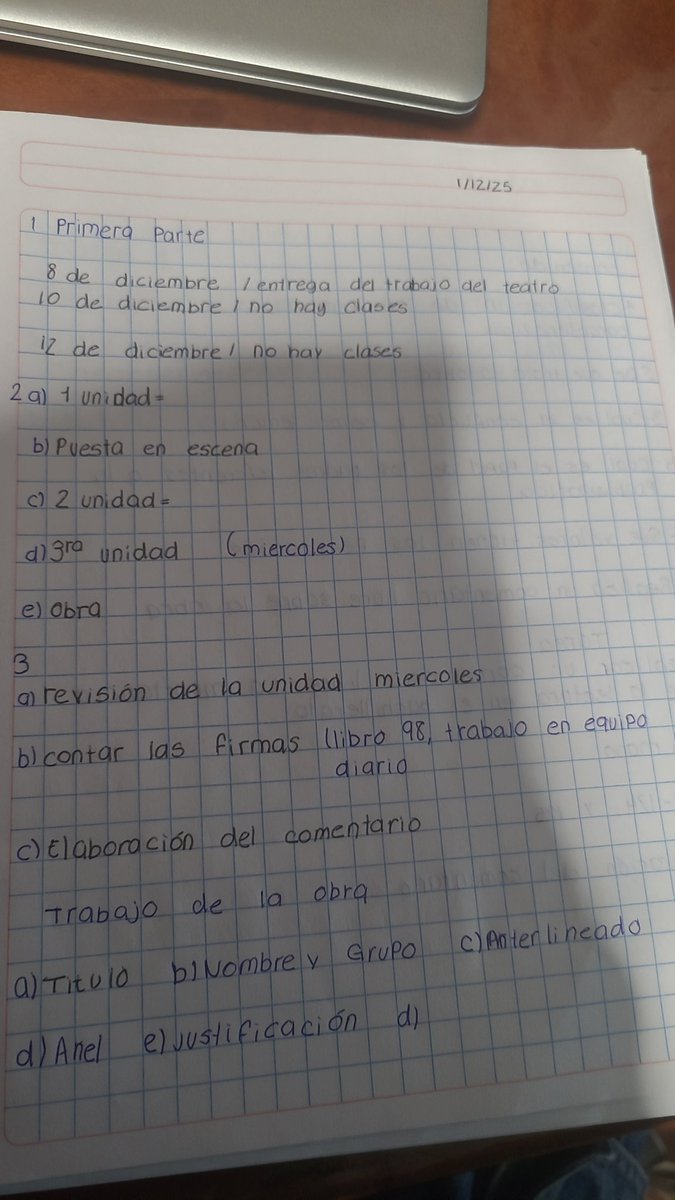 1/12/25
1 Primera Parte
8 de diciembre / entrega del trabajo del teatro
10 de diciembre / no hay clases
12 de diciembre / no hay clases
2 a) 1 unidad=
b) Puesta en escena
c) 2 unidad=
d) 3ra unidad (miercoles)
e) Obra
3
a) revisión de la unidad miercoles
b) contar las firmas (libro 98, trabajo en equipo
diario
c) Elaboración del comentario
Trabajo de la obra
a) Titulo b) Nombre y Grupo c) Anterlineado
d) Anel e) Justificación d)